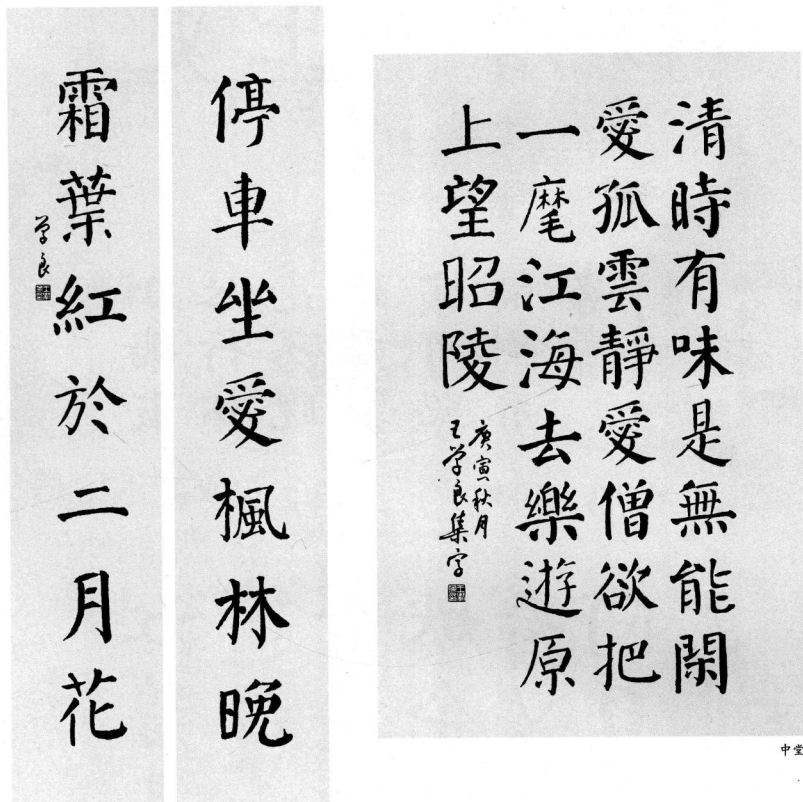 清時有味是無能閑
愛孤雲靜愛僧欲把
一麾江海去樂遊原
上望昭陵
庚寅秋月
王学良集字
停車坐愛楓林晚
霜葉紅於二月花
学良
中堂